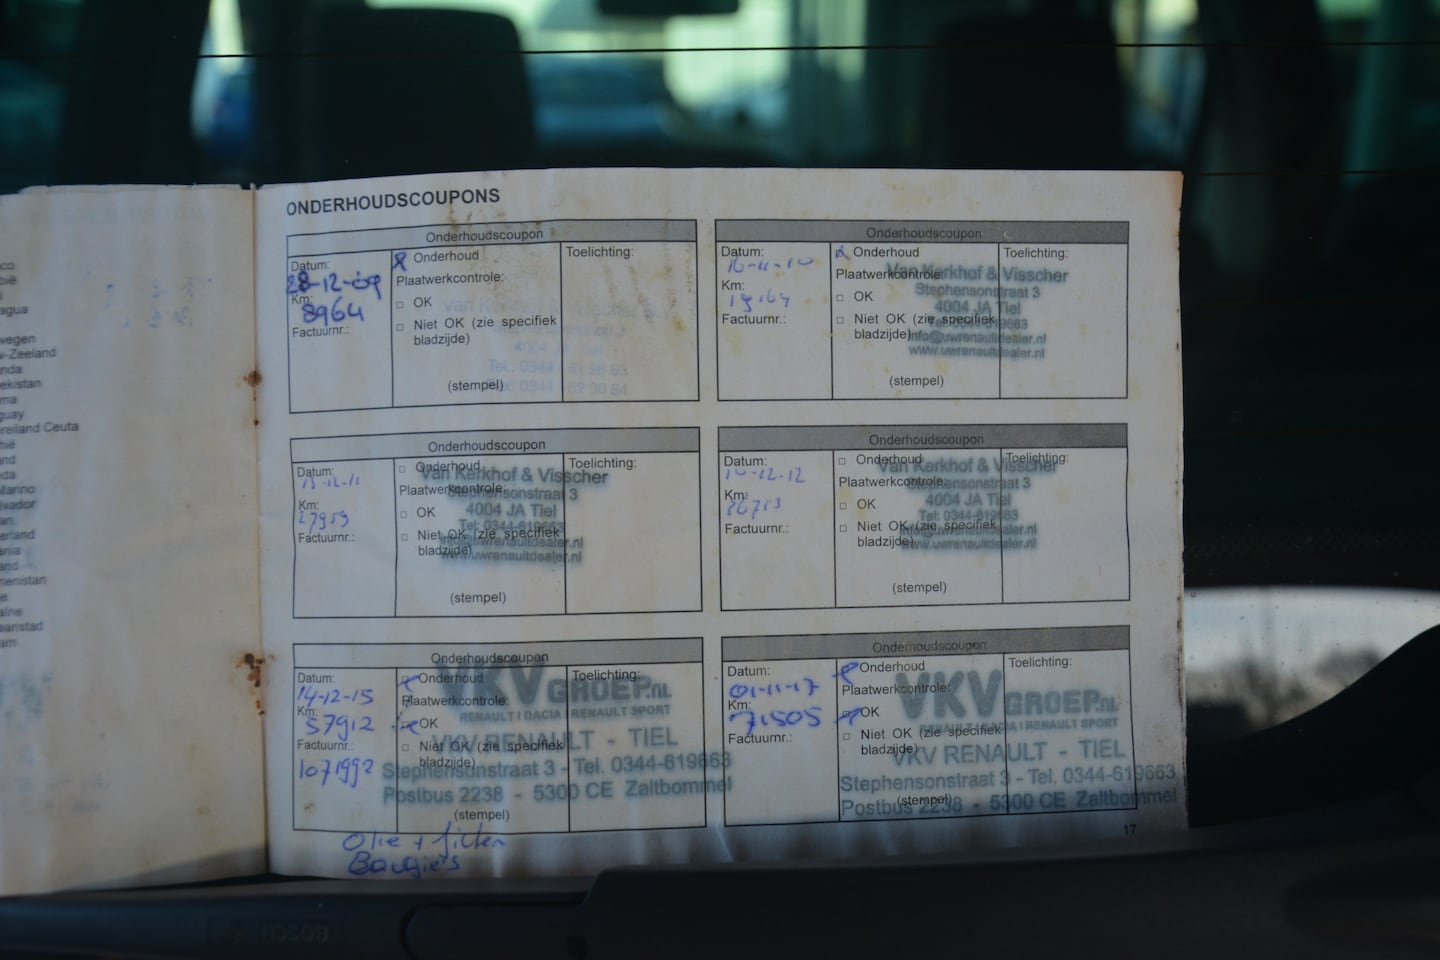 ONDERHOUDSCOUPONS
Onderhoudscoupon
Datum:
28-12-09
Km:
8964
Factuurnr.:
Onderhoud
Plaatwerkcontrole:
OK
Niet OK (zie specifiek
bladzijde)
(stempel)
Toelichting:
Van Kerkhof &
4004 JA Tiel
Tel.: 0344 - 61 96 63
Fax: 0344 - 62 30 84
Onderhoudscoupon
Datum:
16-11-10
Km:
19164
Factuurnr.:
Onderhoud
Plaatwerkcontrole:
OK
Niet OK (zie specifiek
bladzijde)
(stempel)
Toelichting:
Van Kerkhof & Visscher
Stephensonstraat 3
4004 JA Tiel
Tel: 0344-619663
info@uwrenaultdealer.nl
www.uwrenaultdealer.nl
Onderhoudscoupon
Datum:
13-12-11
Km:
27959
Factuurnr.:
Onderhoud
Plaatwerkcontrole:
OK
Niet OK (zie specifiek
bladzijde)
(stempel)
Toelichting:
Van Kerkhof & Visscher
Stephensonstraat 3
4004 JA Tiel
Tel: 0344-619663
info@uwrenaultdealer.nl
www.uwrenaultdealer.nl
Onderhoudscoupon
Datum:
10-12-12
Km:
36753
Factuurnr.:
Onderhoud
Plaatwerkcontrole:
OK
Niet OK (zie specifiek
bladzijde)
(stempel)
Toelichting:
Van Kerkhof & Visscher
Stephensonstraat 3
4004 JA Tiel
Tel: 0344-619663
info@uwrenaultdealer.nl
www.uwrenaultdealer.nl
Onderhoudscoupon
Datum:
14-12-15
Km:
57912
Factuurnr.:
1071992
Onderhoud
Plaatwerkcontrole:
OK
Niet OK (zie specifiek
bladzijde)
(stempel)
Toelichting:
VKV GROEP.NL
RENAULT | DACIA | RENAULT SPORT
VKV RENAULT - TIEL
Stephensonstraat 3 - Tel. 0344-619663
Postbus 2238 - 5300 CE Zaltbommel
Olie + filter
Bougies
Onderhoudscoupon
Datum:
01-11-17
Km:
71505
Factuurnr.:
Onderhoud
Plaatwerkcontrole:
OK
Niet OK (zie specifiek
bladzijde)
(stempel)
Toelichting:
VKV GROEP.NL
RENAULT | DACIA | RENAULT SPORT
VKV RENAULT - TIEL
Stephensonstraat 3 - Tel. 0344-619663
Postbus 2238 - 5300 CE Zaltbommel
17
BOSCH